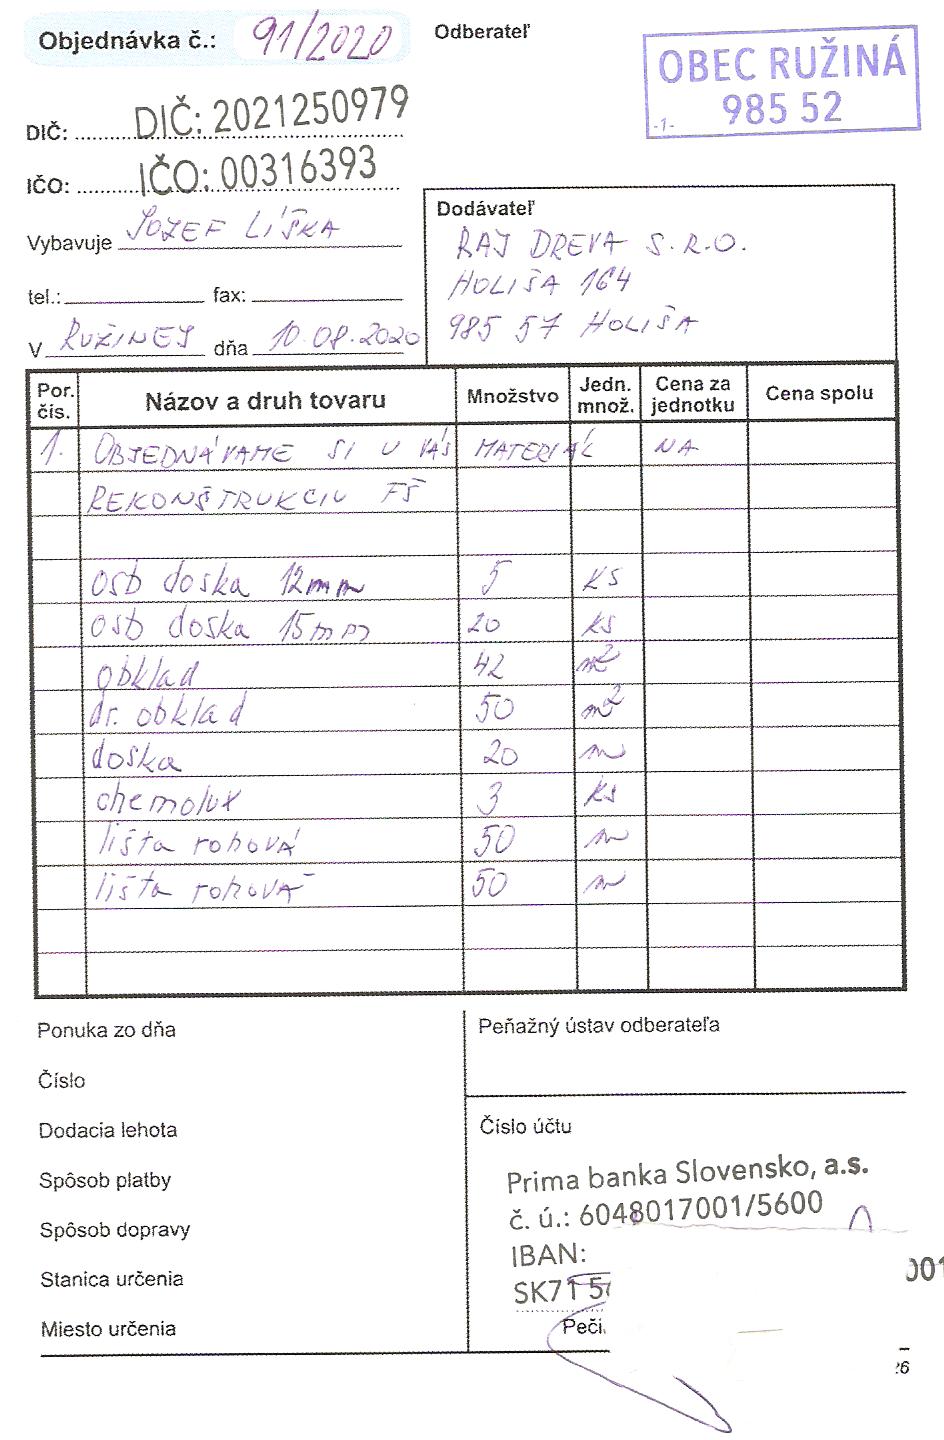 Objednávka č.: 91/2020
Odberateľ
OBEC RUŽINÁ
985 52
-1-
DIČ: DIČ: 2021250979
IČO: IČO: 00316393
Vybavuje JOZEF LÍŠKA
tel.: fax:
V RUŽINEJ dňa 10.08.2020
Dodávateľ
RAJ DREVA S.R.O.
HOLIŠA 164
985 57 HOLIŠA
Por. čís. Názov a druh tovaru Množstvo Jedn. množ. Cena za jednotku Cena spolu
1. OBJEDNÁVAME SI U VÁS MATERIÁL NA
REKONŠTRUKCIU FŠ
osb doska 12mm 5 ks
osb doska 15mm 20 ks
obklad 42 m²
dr. obklad 50 m²
doska 20 m
chemolux 3 ks
lišta rohová 50 m
lišta rohová 50 m
Ponuka zo dňa
Číslo
Dodacia lehota
Spôsob platby
Spôsob dopravy
Stanica určenia
Miesto určenia
Peňažný ústav odberateľa
Číslo účtu
Prima banka Slovensko, a.s.
č. ú.: 6048017001/5600
IBAN:
SK71 5 001